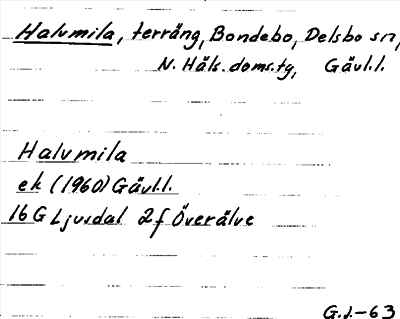 Halvmila, terräng, Bondebo, Delsbo sn,
N. Häls. doms.tg, Gävl.l.
Halvmila
ek (1960) Gävl.l.
16 G Ljusdal 2 f Överälve
G.J.-63